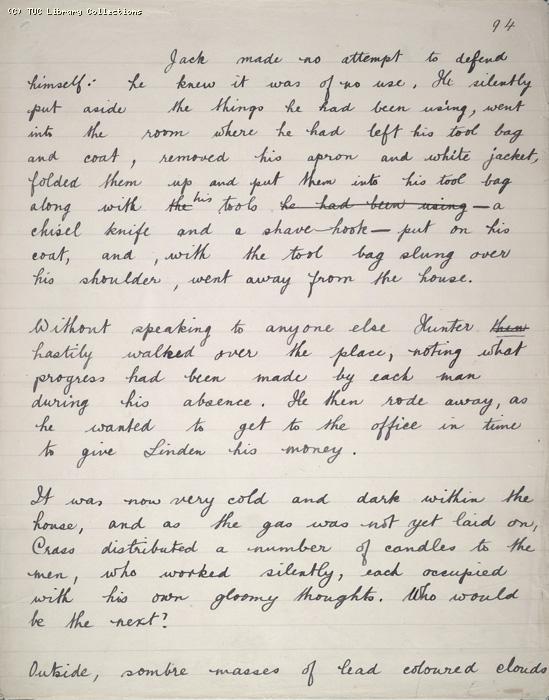 (C) TUC Library Collections
94
Jack made no attempt to defend
himself: he knew it was of no use. He silently
put aside the things he had been using, went
into the room where he had left his tool bag
and coat, removed his apron and white jacket,
folded them up and put them into his tool bag
along with the his tools he had been using — a
chisel knife and a shave-hook — put on his
coat, and, with the tool bag slung over
his shoulder, went away from the house.
Without speaking to anyone else Hunter then
hastily walked over the place, noting what
progress had been made by each man
during his absence. He then rode away, as
he wanted to get to the office in time
to give Linden his money.
It was now very cold and dark within the
house, and as the gas was not yet laid on,
Crass distributed a number of candles to the
men, who worked silently, each occupied
with his own gloomy thoughts. Who would
be the next?
Outside, sombre masses of lead coloured clouds